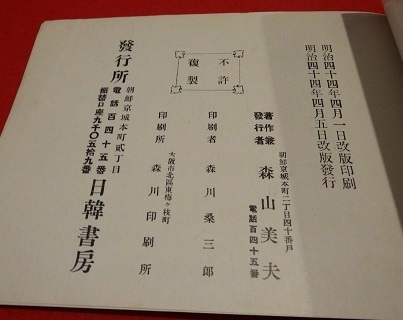 明治四十四年四月一日改版印刷
明治四十四年四月五日改版發行
不許
複製
朝鮮京城本町二丁目四十番戶
著作兼
發行者
森山美夫
電話百四十五番
印刷者 森川桑三郎
大阪市北區東梅ヶ枝町
印刷所 森川印刷所
朝鮮京城本町貳丁目
發行所 日韓書房
電話百四十五番
振替口座九千〇五拾九番